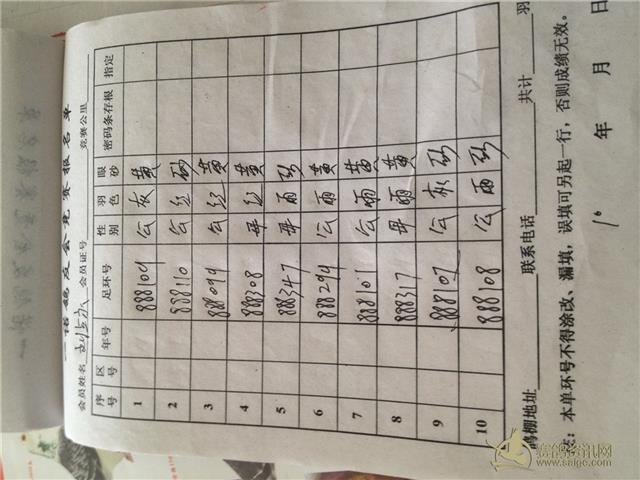 一诺鸽友会竞赛报名单
会员姓名 会员证号 竞赛公里
序号 区号 年号 足环号 性别 羽色 眼砂 密码条存根 指定
1 888109 公 灰 黄
2 888110 公 红 砂
3 888099 公 红 黄
4 888208 母 红 黄
5 888347 母 雨 砂
6 888294 公 雨 黄
7 888101 公 雨 黄
8 888317 母 雨 黄
9 888107 公 灰 砂
10 888108 公 雨 砂
鸽棚地址 联系电话 共计 羽
注：本单环号不得涂改、漏填，误填可另起一行，否则成绩无效。
年 月 日
赛鸽资讯网
www.saige.com